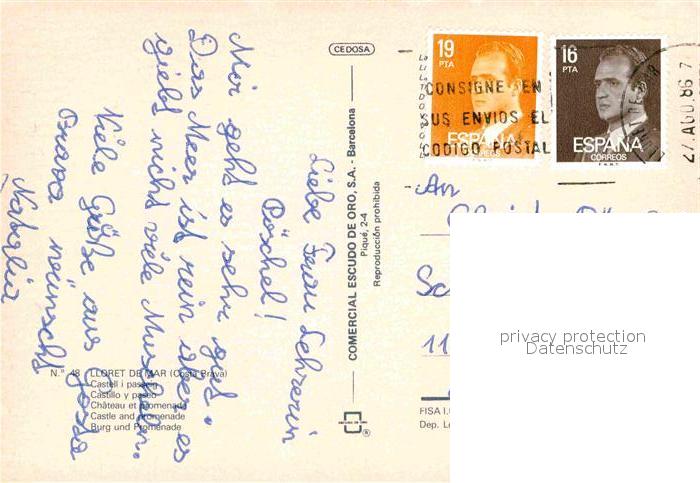 Liebe Frau Lehrerin
Pöschel!
Mir geht es sehr gut.
Das Meer ist rein aber es
giebt nicht viele Muscheln.
Viele Grüße aus
Brava wünscht
Natalia
N.° 48 LLORET DE MAR (Costa Brava)
Castell i passeig
Castillo y paseo
Château et promenade
Castle and promenade
Burg und Promenade
CEDOSA
COMERCIAL ESCUDO DE ORO, S.A. - Barcelona
Piqué, 2-4
Reproducción prohibida
ESCUDO DE ORO
®
19
PTA
ESPAÑA
CORREOS
16
PTA
ESPAÑA
CORREOS
F.N.M.T.
CONSIGNE EN
SUS ENVIOS EL
CODIGO POSTAL
AGO 86
An
11
FISA I.
Dep. Le
privacy protection
Datenschutz